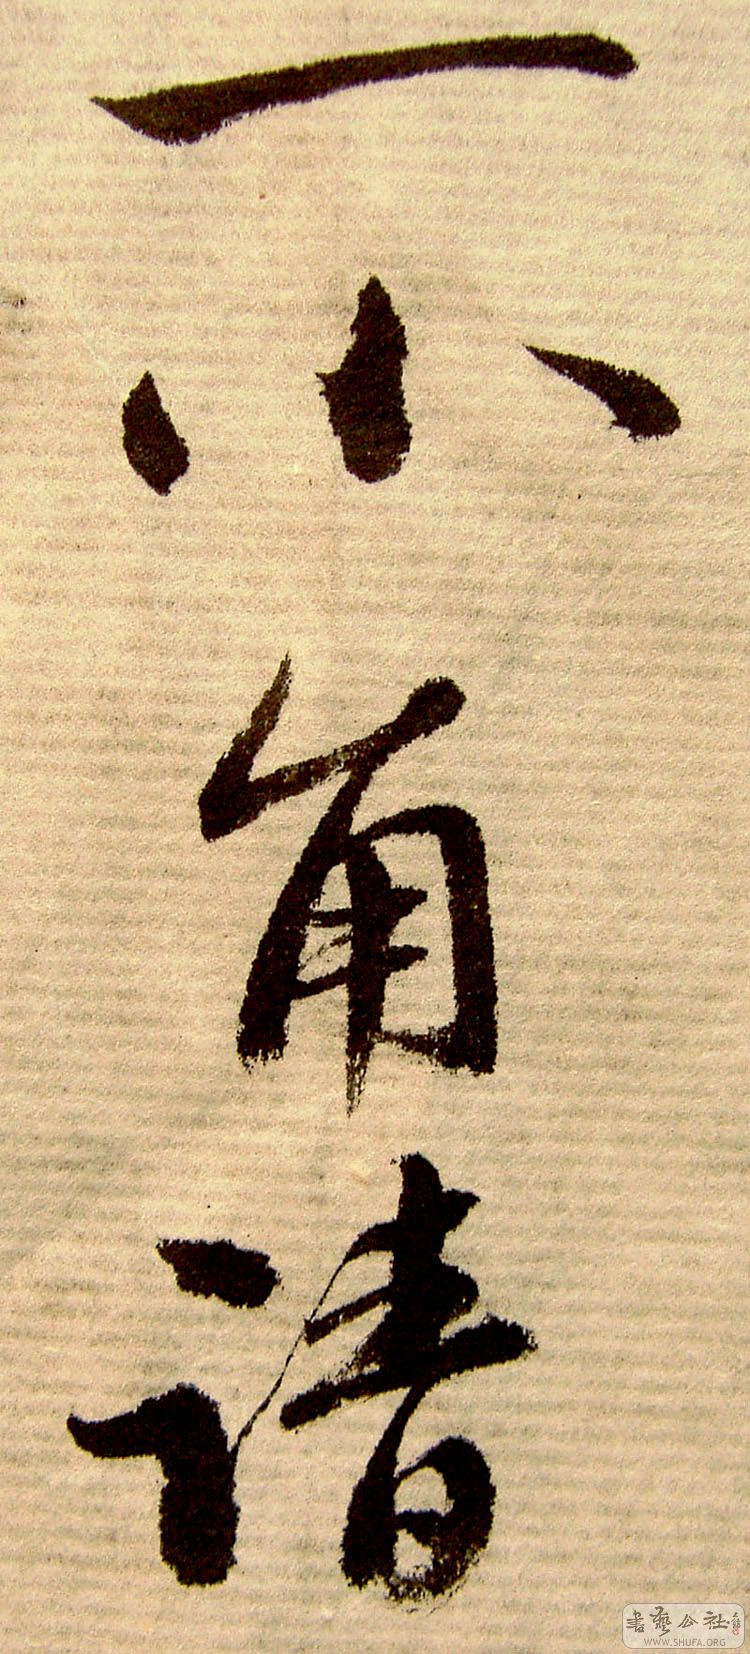 一小角請
書藝公社
WWW.SHUFA.ORG